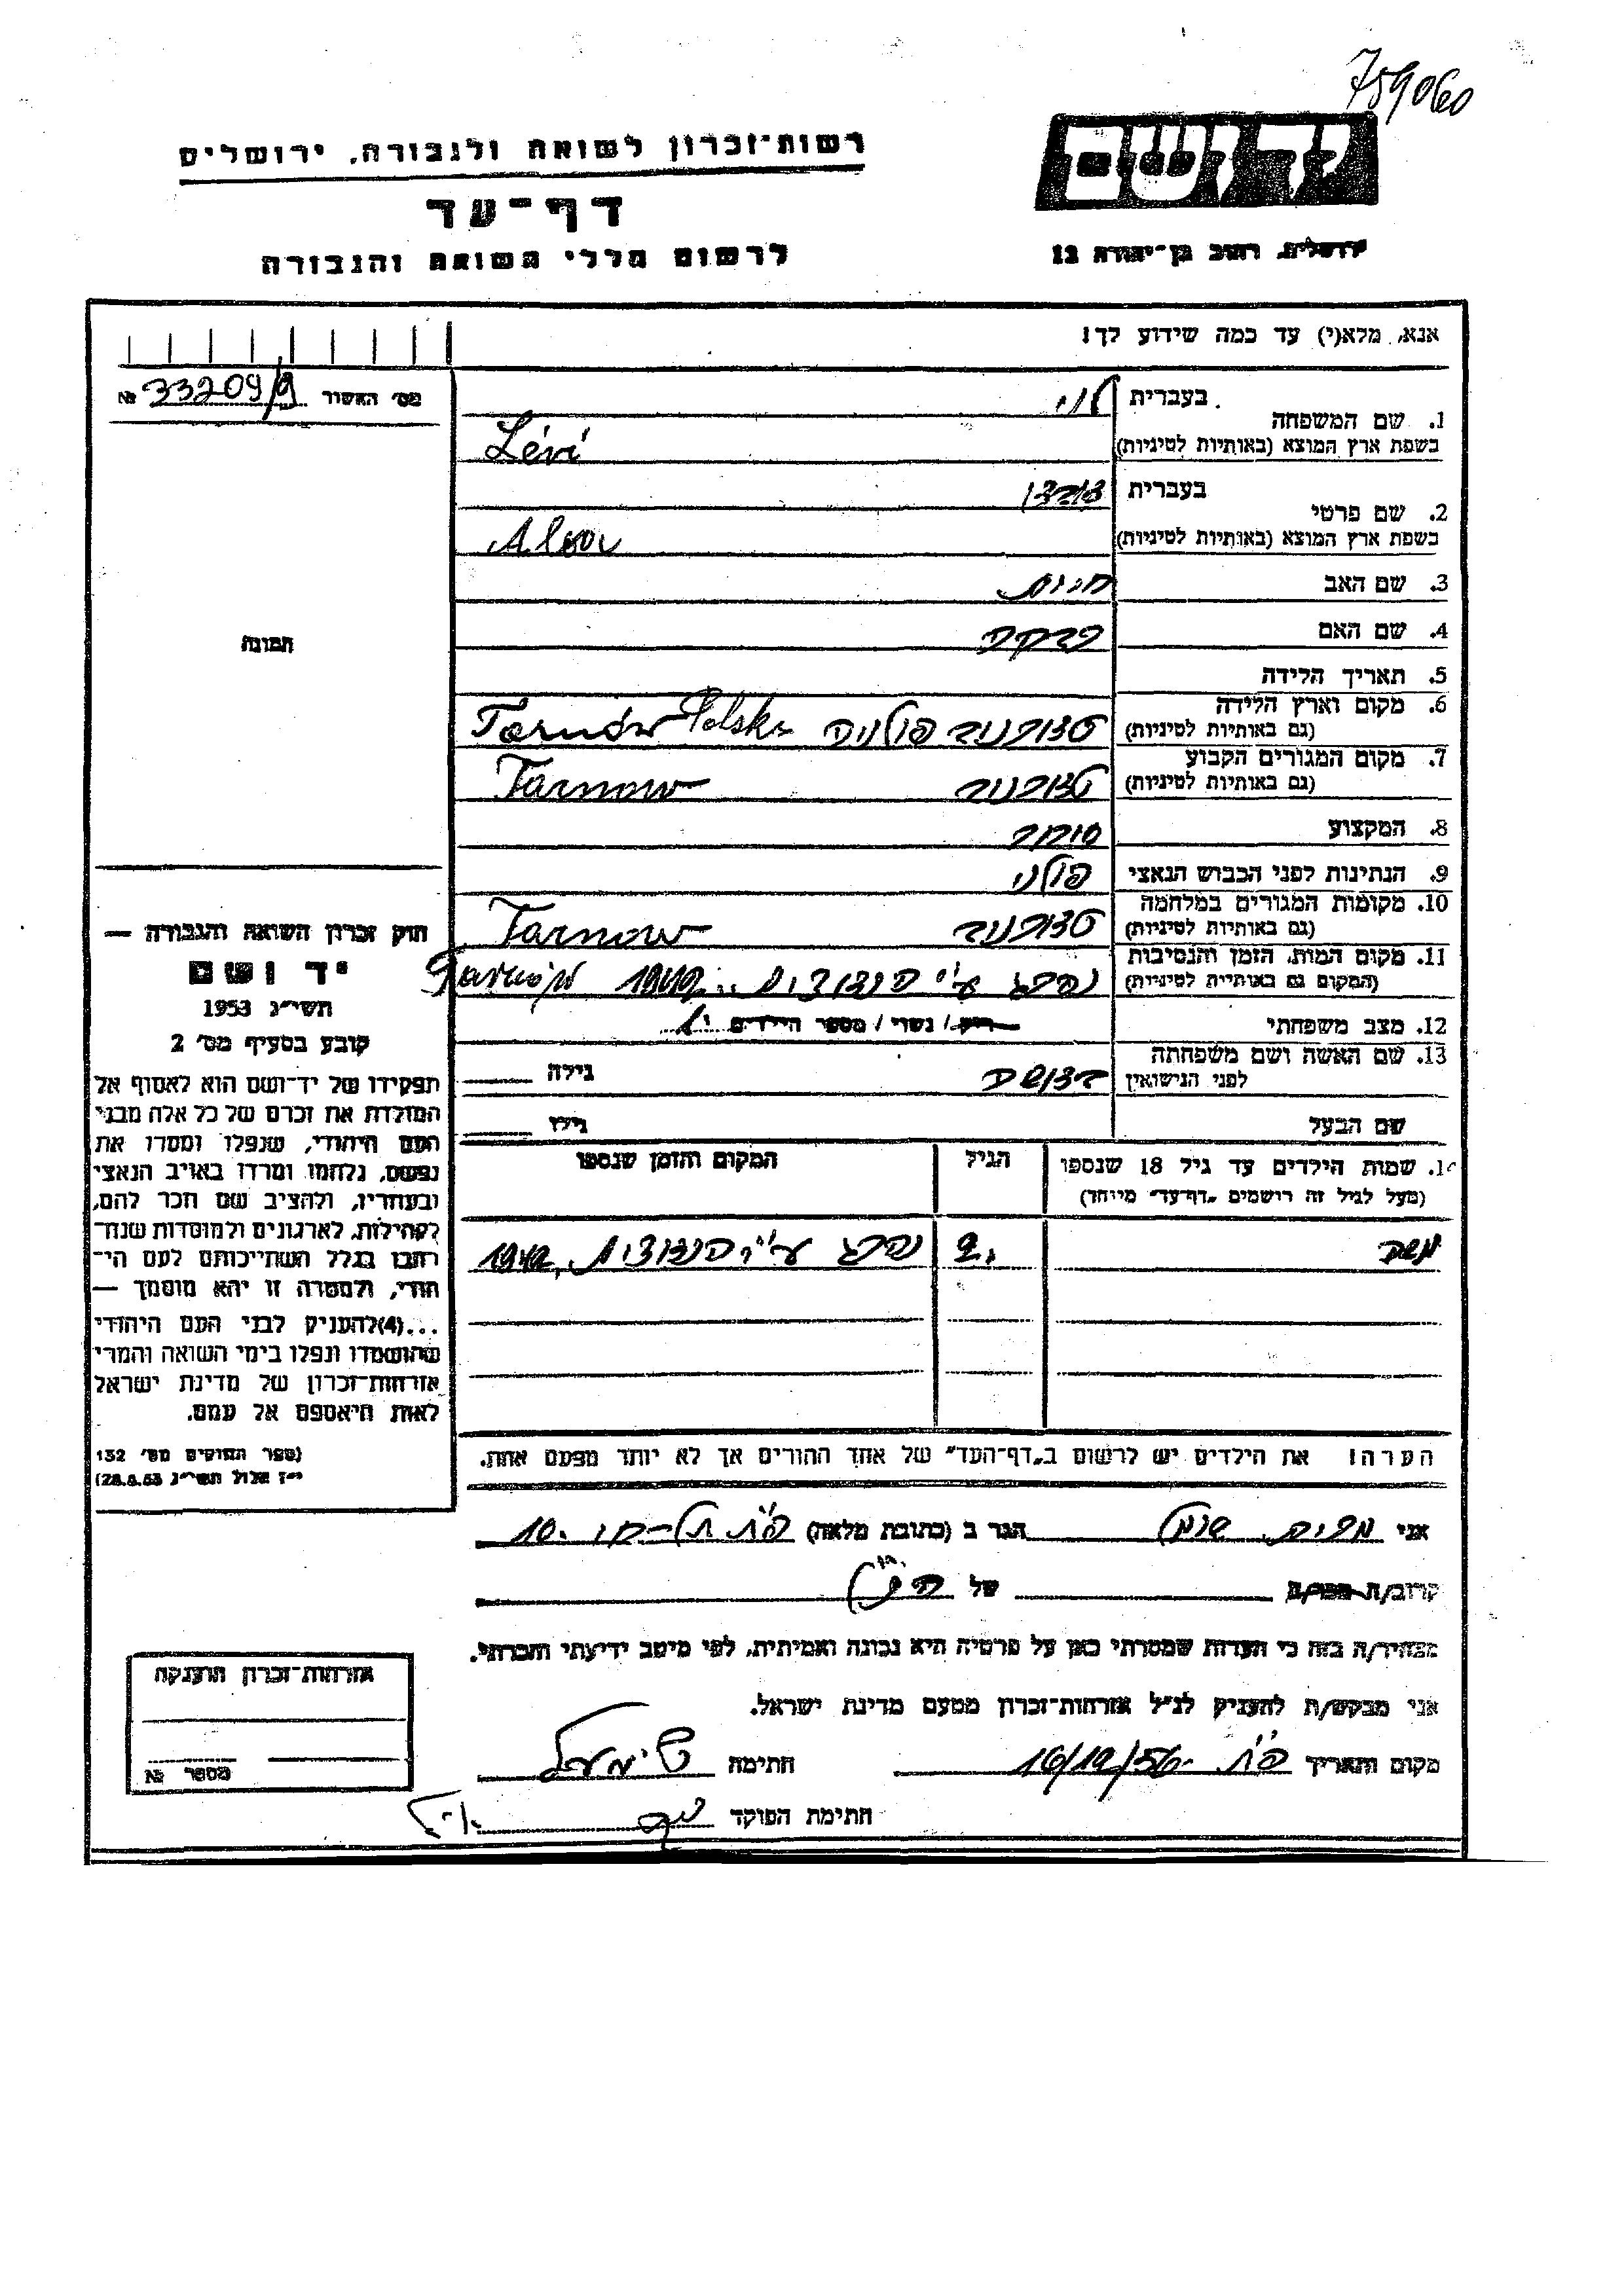 759060
יד ושם
רשות־זכרון לשואה ולגבורה, ירושלים
דף־עד
לרשום חללי השואה והגבורה
ירושלים, רחוב בן־יהודה 12
אנא, מלא(י) עד כמה שידוע לך!
מס׳ האשור 33209/9 №
1. שם המשפחה
בעברית לוי
בשפת ארץ המוצא (באותיות לטיניות) Lévi
2. שם פרטי
בעברית
בשפת ארץ המוצא (באותיות לטיניות)
3. שם האב
4. שם האם
5. תאריך הלידה
6. מקום וארץ הלידה
(גם באותיות לטיניות) טארנוב פולניה Tarnów Polska
7. מקום המגורים הקבוע
(גם באותיות לטיניות) טארנוב Tarnow
8. המקצוע סוחר
9. הנתינות לפני הכבוש הנאצי פולני
10. מקומות המגורים במלחמה
(גם באותיות לטיניות) טארנוב Tarnow
11. מקום המות, הזמן והנסיבות
(המקום גם באותיית לטיניות) נהרג ע"י הנאצים 1942
12. מצב משפחתי רווק / נשוי / מספר הילדים 1
13. שם האשה ושם משפחתה
לפני הנישואין
גילה
שם הבעל
גילו
14. שמות הילדים עד גיל 18 שנספו
(מעל לגיל זה רושמים „דף־עד״ מייוחד)
הגיל
המקום והזמן שנספו
משה
נהרג ע"י הנאצים, 1942
הערה! את הילדים יש לרשום ב„דף־העד״ של אחד ההורים אך לא יותר מפעם אחת.
אני
הגר ב (כתובת מלאה) פ"ת תל-חי 10
קרוב/ה מכר/ה של הנ"ל
מצהיר/ה בזה כי העדות שמסרתי כאן על פרטיה היא נכונה ואמיתית, לפי מיטב ידיעתי והכרתי.
אני מבקש/ת להעניק לנ״ל אזרחות־זכרון מטעם מדינת ישראל.
מקום ותאריך פ"ת 16/12/56
חתימה
חתימת הפוקד
תמונה
חוק זכרון השואה והגבורה —
יד ושם
תשי״ג 1953
קובע בסעיף מס׳ 2
תפקידו של יד־ושם הוא לאסוף אל
המולדת את זכרם של כל אלה מבני
העם היהודי, שנפלו ומסרו את
נפשם, נלחמו ומרדו באויב הנאצי
ובעוזריו, ולהציב שם וזכר להם,
לקהילות, לארגונים ולמוסדות שנח־
רבו בגלל השתייכותם לעם הי־
הודי, ולמטרה זו יהא מוסמך —
...(4)להעניק לבני העם היהודי
שהושמדו ונפלו בימי השואה והמרי
אזרחות־זכרון של מדינת ישראל
לאות היאספם אל עמם.
(ספר החוקים מס׳ 132
י״ז אלול תשי״ג 28.8.53)
אזרחות־זכרון הוענקה
מספר №